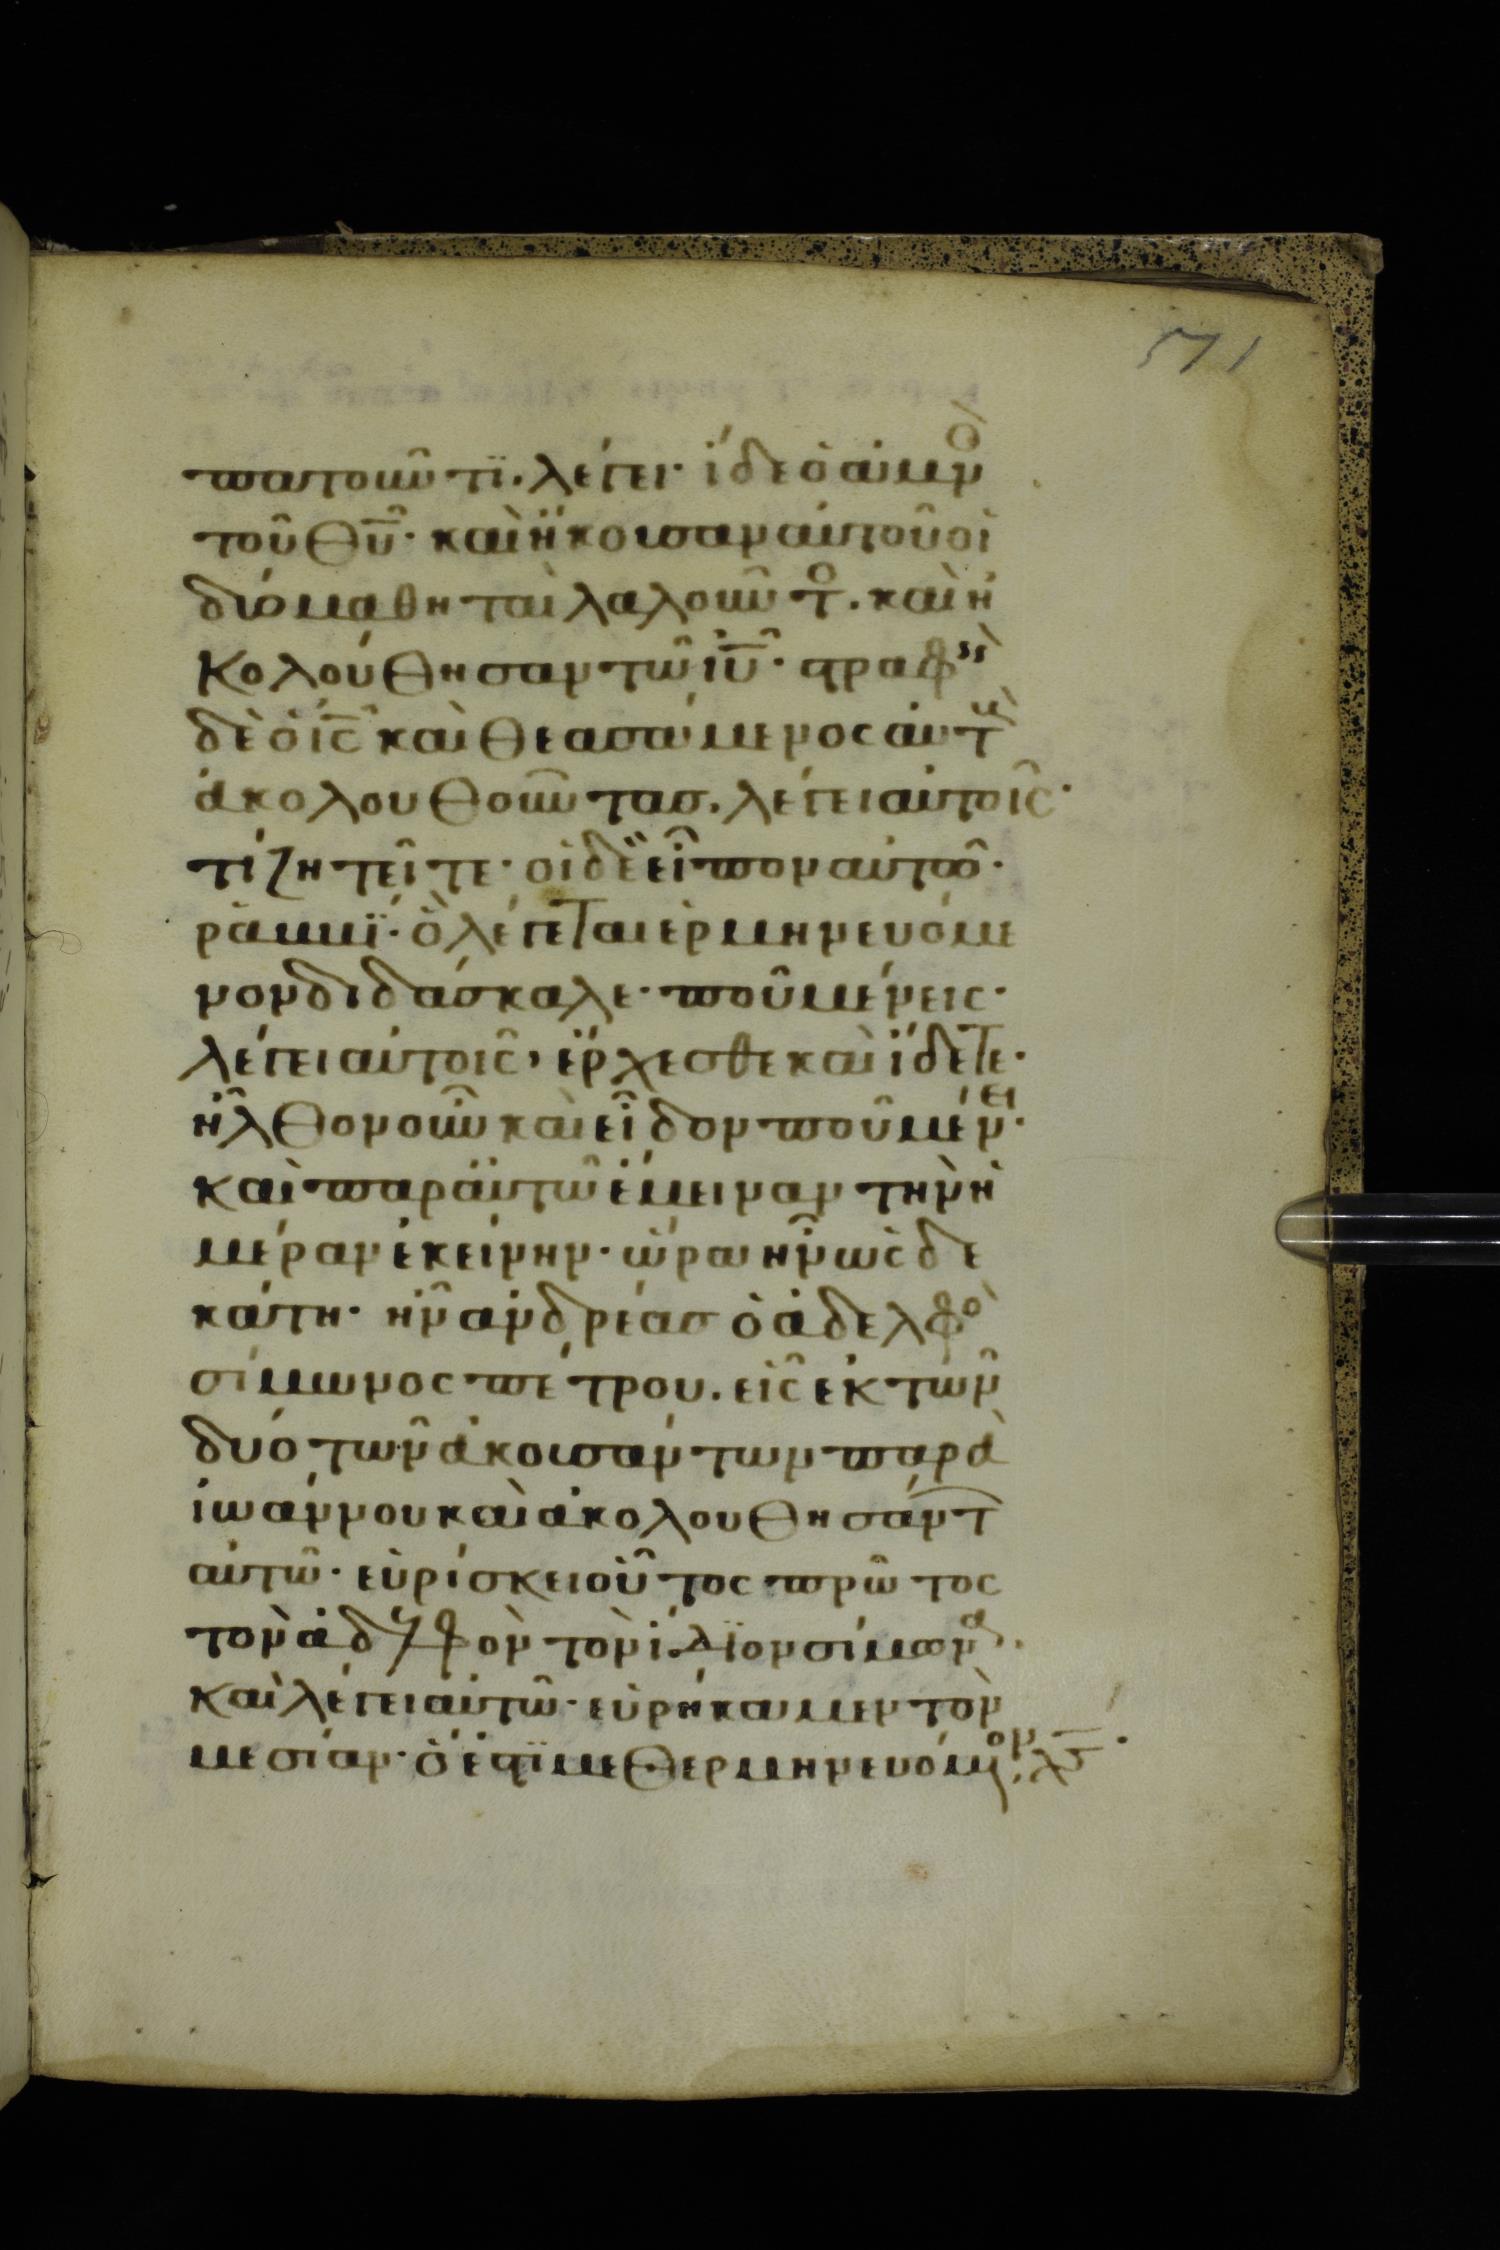 571
πατοῦντϊ. λέγει· ἴδε ὁ ἀμνὸ
τοῦ θῦ· καὶ ἤκουσαν αὐτοῦ οἱ
δύο μαθηταὶ λαλοῦντο. καὶ ἠ
κολούθησαν τῶ ἰῦ· στραφεὶ
δὲ ὁ ἰς καὶ θεασάμενος αὐτοὺ
ἀκολουθοῦντασ. λέγει αὐτοῖς·
τί ζητεῖτε· οἱ δὲ εἶπον αὐτῶ·
ῥαββϊ· ὃ λέγεται ἑρμηνευόμε
νον διδάσκαλε· ποῦ μένεις·
λέγει αὐτοῖς, ἔρχεσθε καὶ ἴδετε·
ἦλθον οὖν καὶ εἶδον ποῦ μένει·
καὶ παρ αὐτῶ ἔμειναν τὴν ἡ
μέραν ἐκείνην· ὥρα ἦν ὡς δε
κάτη· ἦν ἀνδρέασ ὁ ἀδελφὸ
σίμωνος πέτρου. εἷς ἐκ τῶν
δύο τῶν ἀκουσάντων παρὰ
ἰωάννου καὶ ἀκολουθησάντ
αὐτῶ· εὑρίσκει οὗτος πρῶτος
τὸν ἀδελφὸν τὸν ἴδϊον σίμωνα.
καὶ λέγει αὐτῶ· εὑρήκαμεν τὸν
μεσίαν· ὅ ἐστϊ μεθερμηνευόμενον